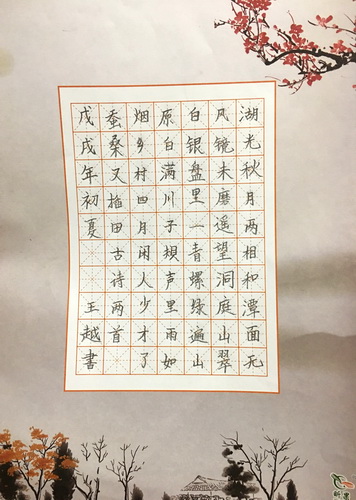 湖光秋月两相和潭面无
风镜未磨遥望洞庭山翠
白银盘里一青螺绿遍山
原白满川子规声里雨如
烟乡村四月闲人少才了
蚕桑又插田古诗两首
戊戌年初夏 王越書